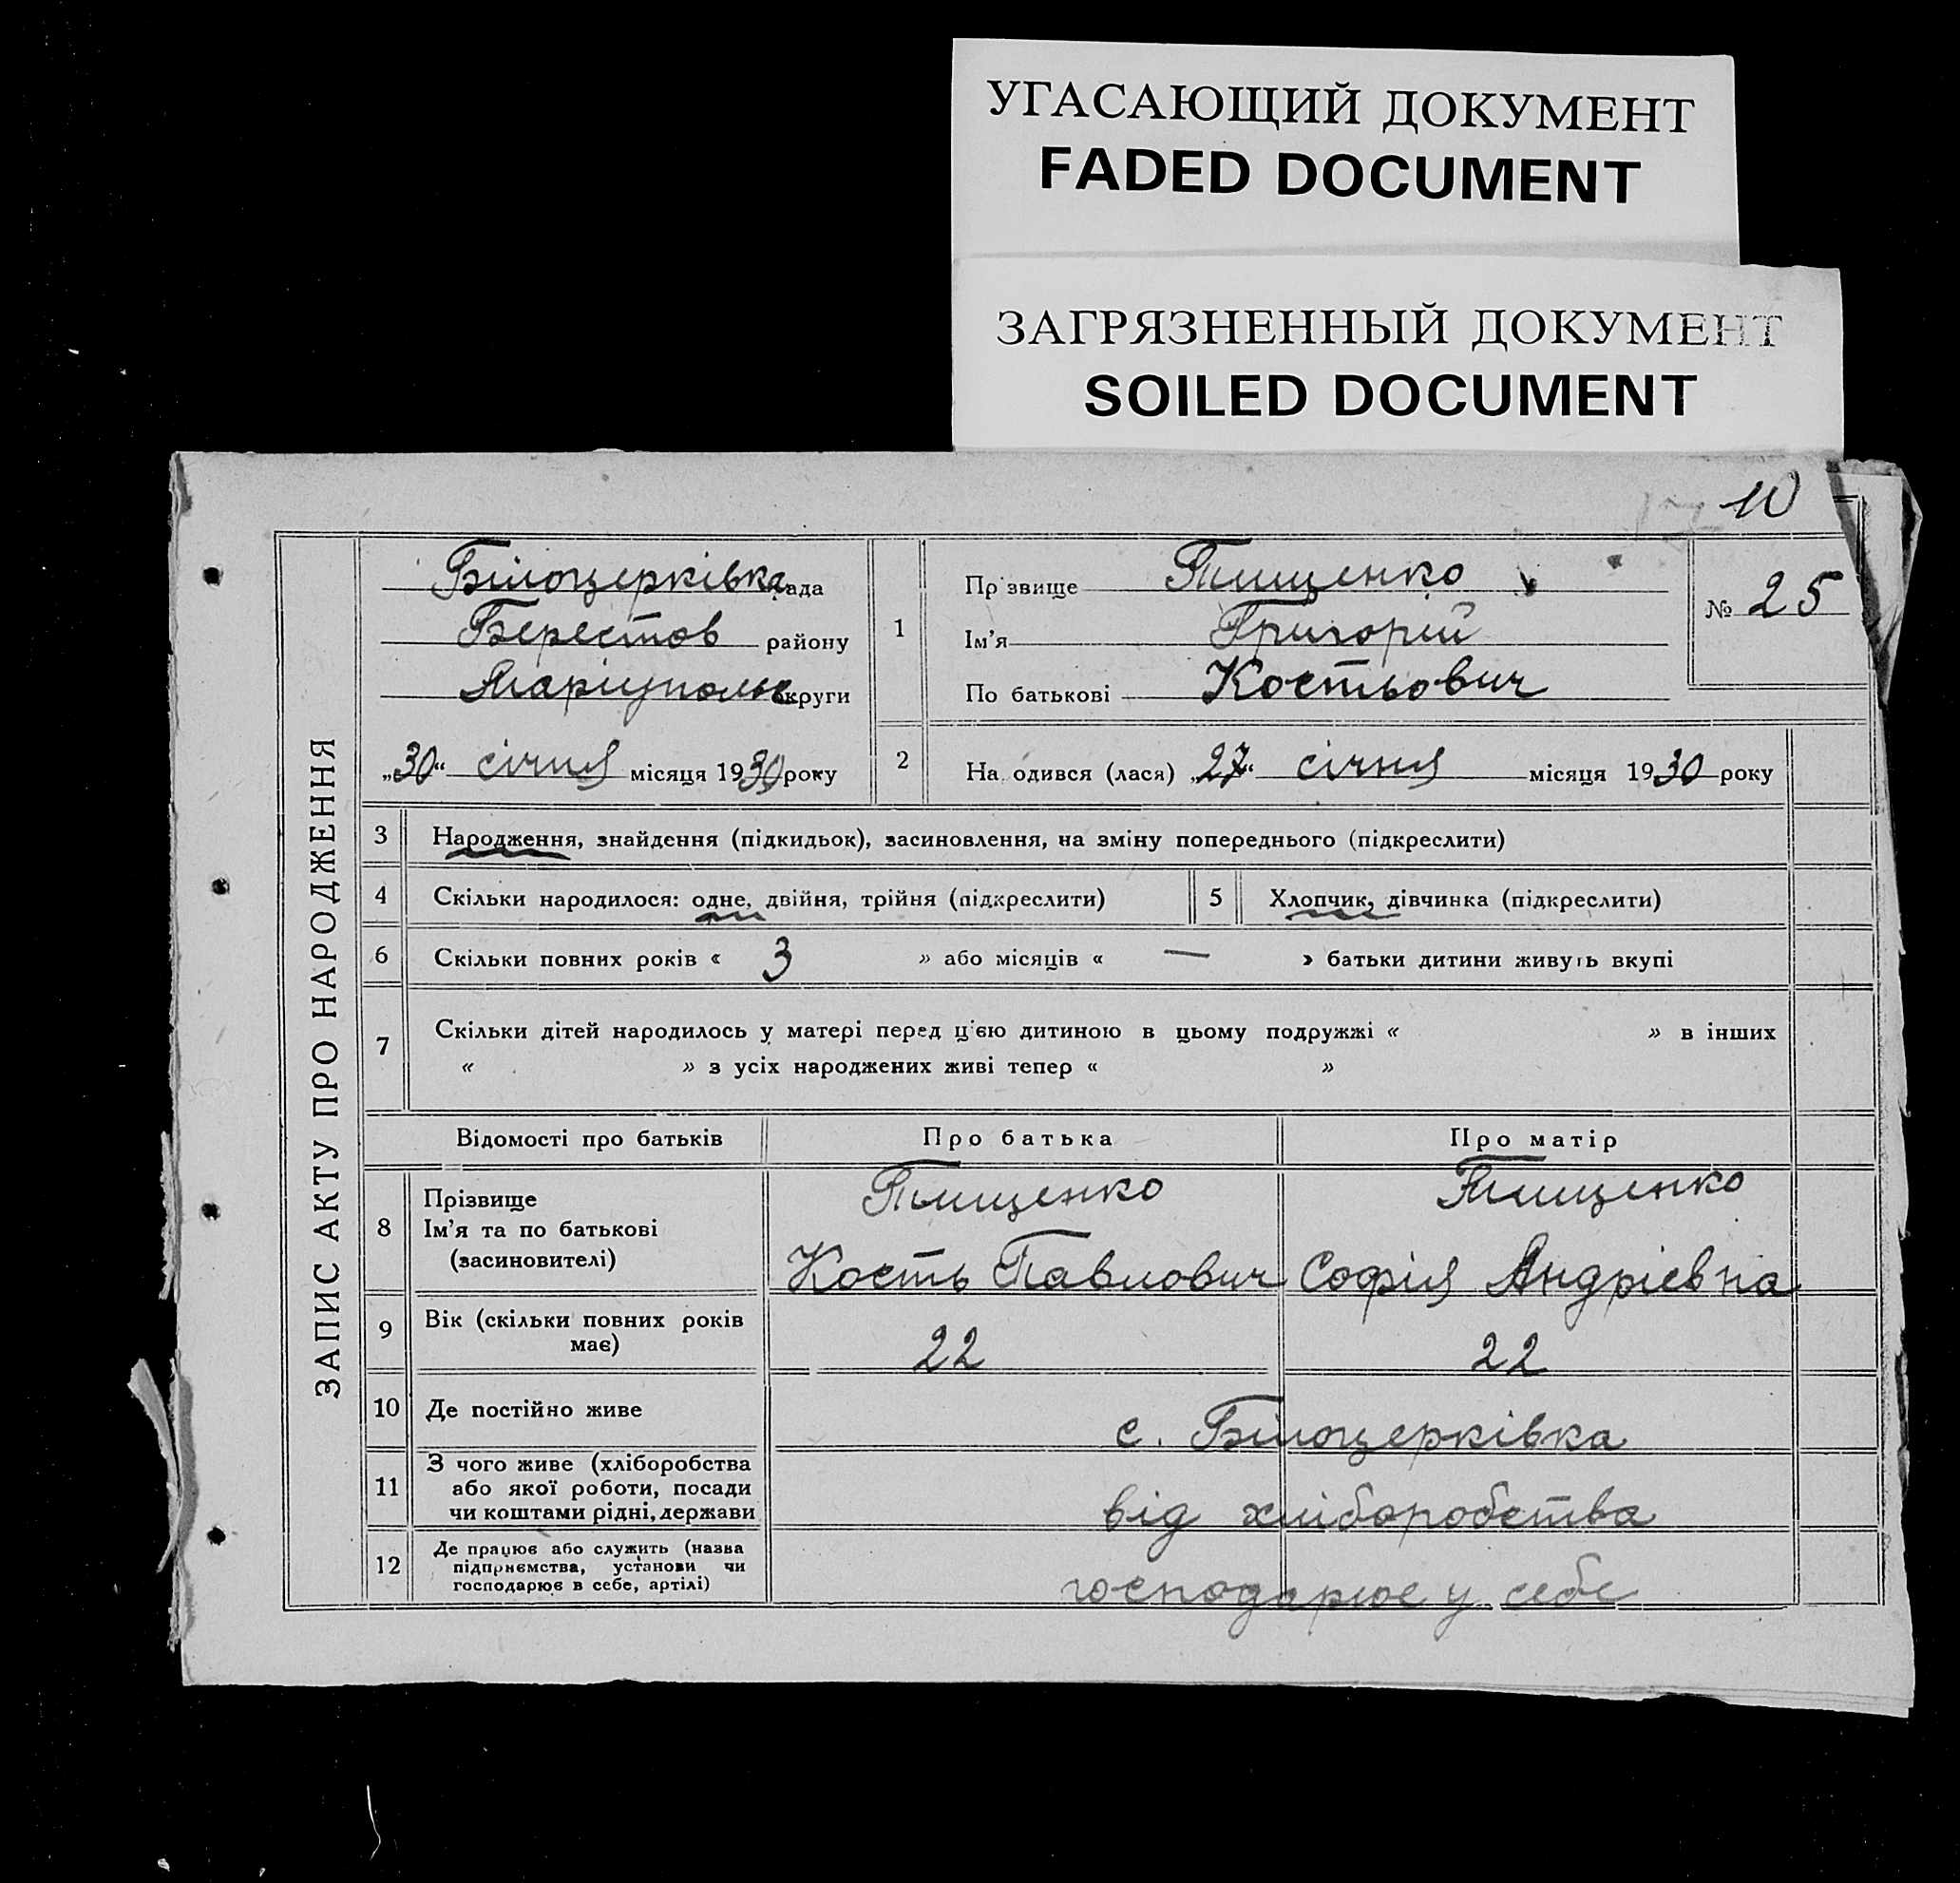 УГАСАЮЩИЙ ДОКУМЕНТ
FADED DOCUMENT
ЗАГРЯЗНЕННЫЙ ДОКУМЕНТ
SOILED DOCUMENT
10
ЗАПИС АКТУ ПРО НАРОДЖЕННЯ
Білоцерківка рада
Берестов району
Маріупольс округи
„30“ січня місяця 1930 року
1
Прізвище Тищенко
Ім'я Григорій
По батькові Костьович
№ 25
2
Народився (лася) „27“ січня місяця 1930 року
3 Народження, знайдення (підкидьок), засиновлення, на зміну попереднього (підкреслити)
4 Скільки народилося: одне, двійня, трійня (підкреслити)
5 Хлопчик, дівчинка (підкреслити)
6 Скільки повних років « 3 » або місяців « — » батьки дитини живуть вкупі
7 Скільки дітей народилось у матері перед цією дитиною в цьому подружжі « » в інших
« » з усіх народжених живі тепер « »
Відомості про батьків Про батька Про матір
8 Прізвище Тищенко Тищенко
Ім'я та по батькові
(засиновителі) Кость Павлович Софія Андрієвна
9 Вік (скільки повних років
має) 22 22
10 Де постійно живе с. Білоцерківка
11 З чого живе (хліборобства
або якої роботи, посади
чи коштами рідні, держави
від хліборобства
12 Де працює або служить (назва
підприємства, установи чи
господарює в себе, артілі)
господарює у себе